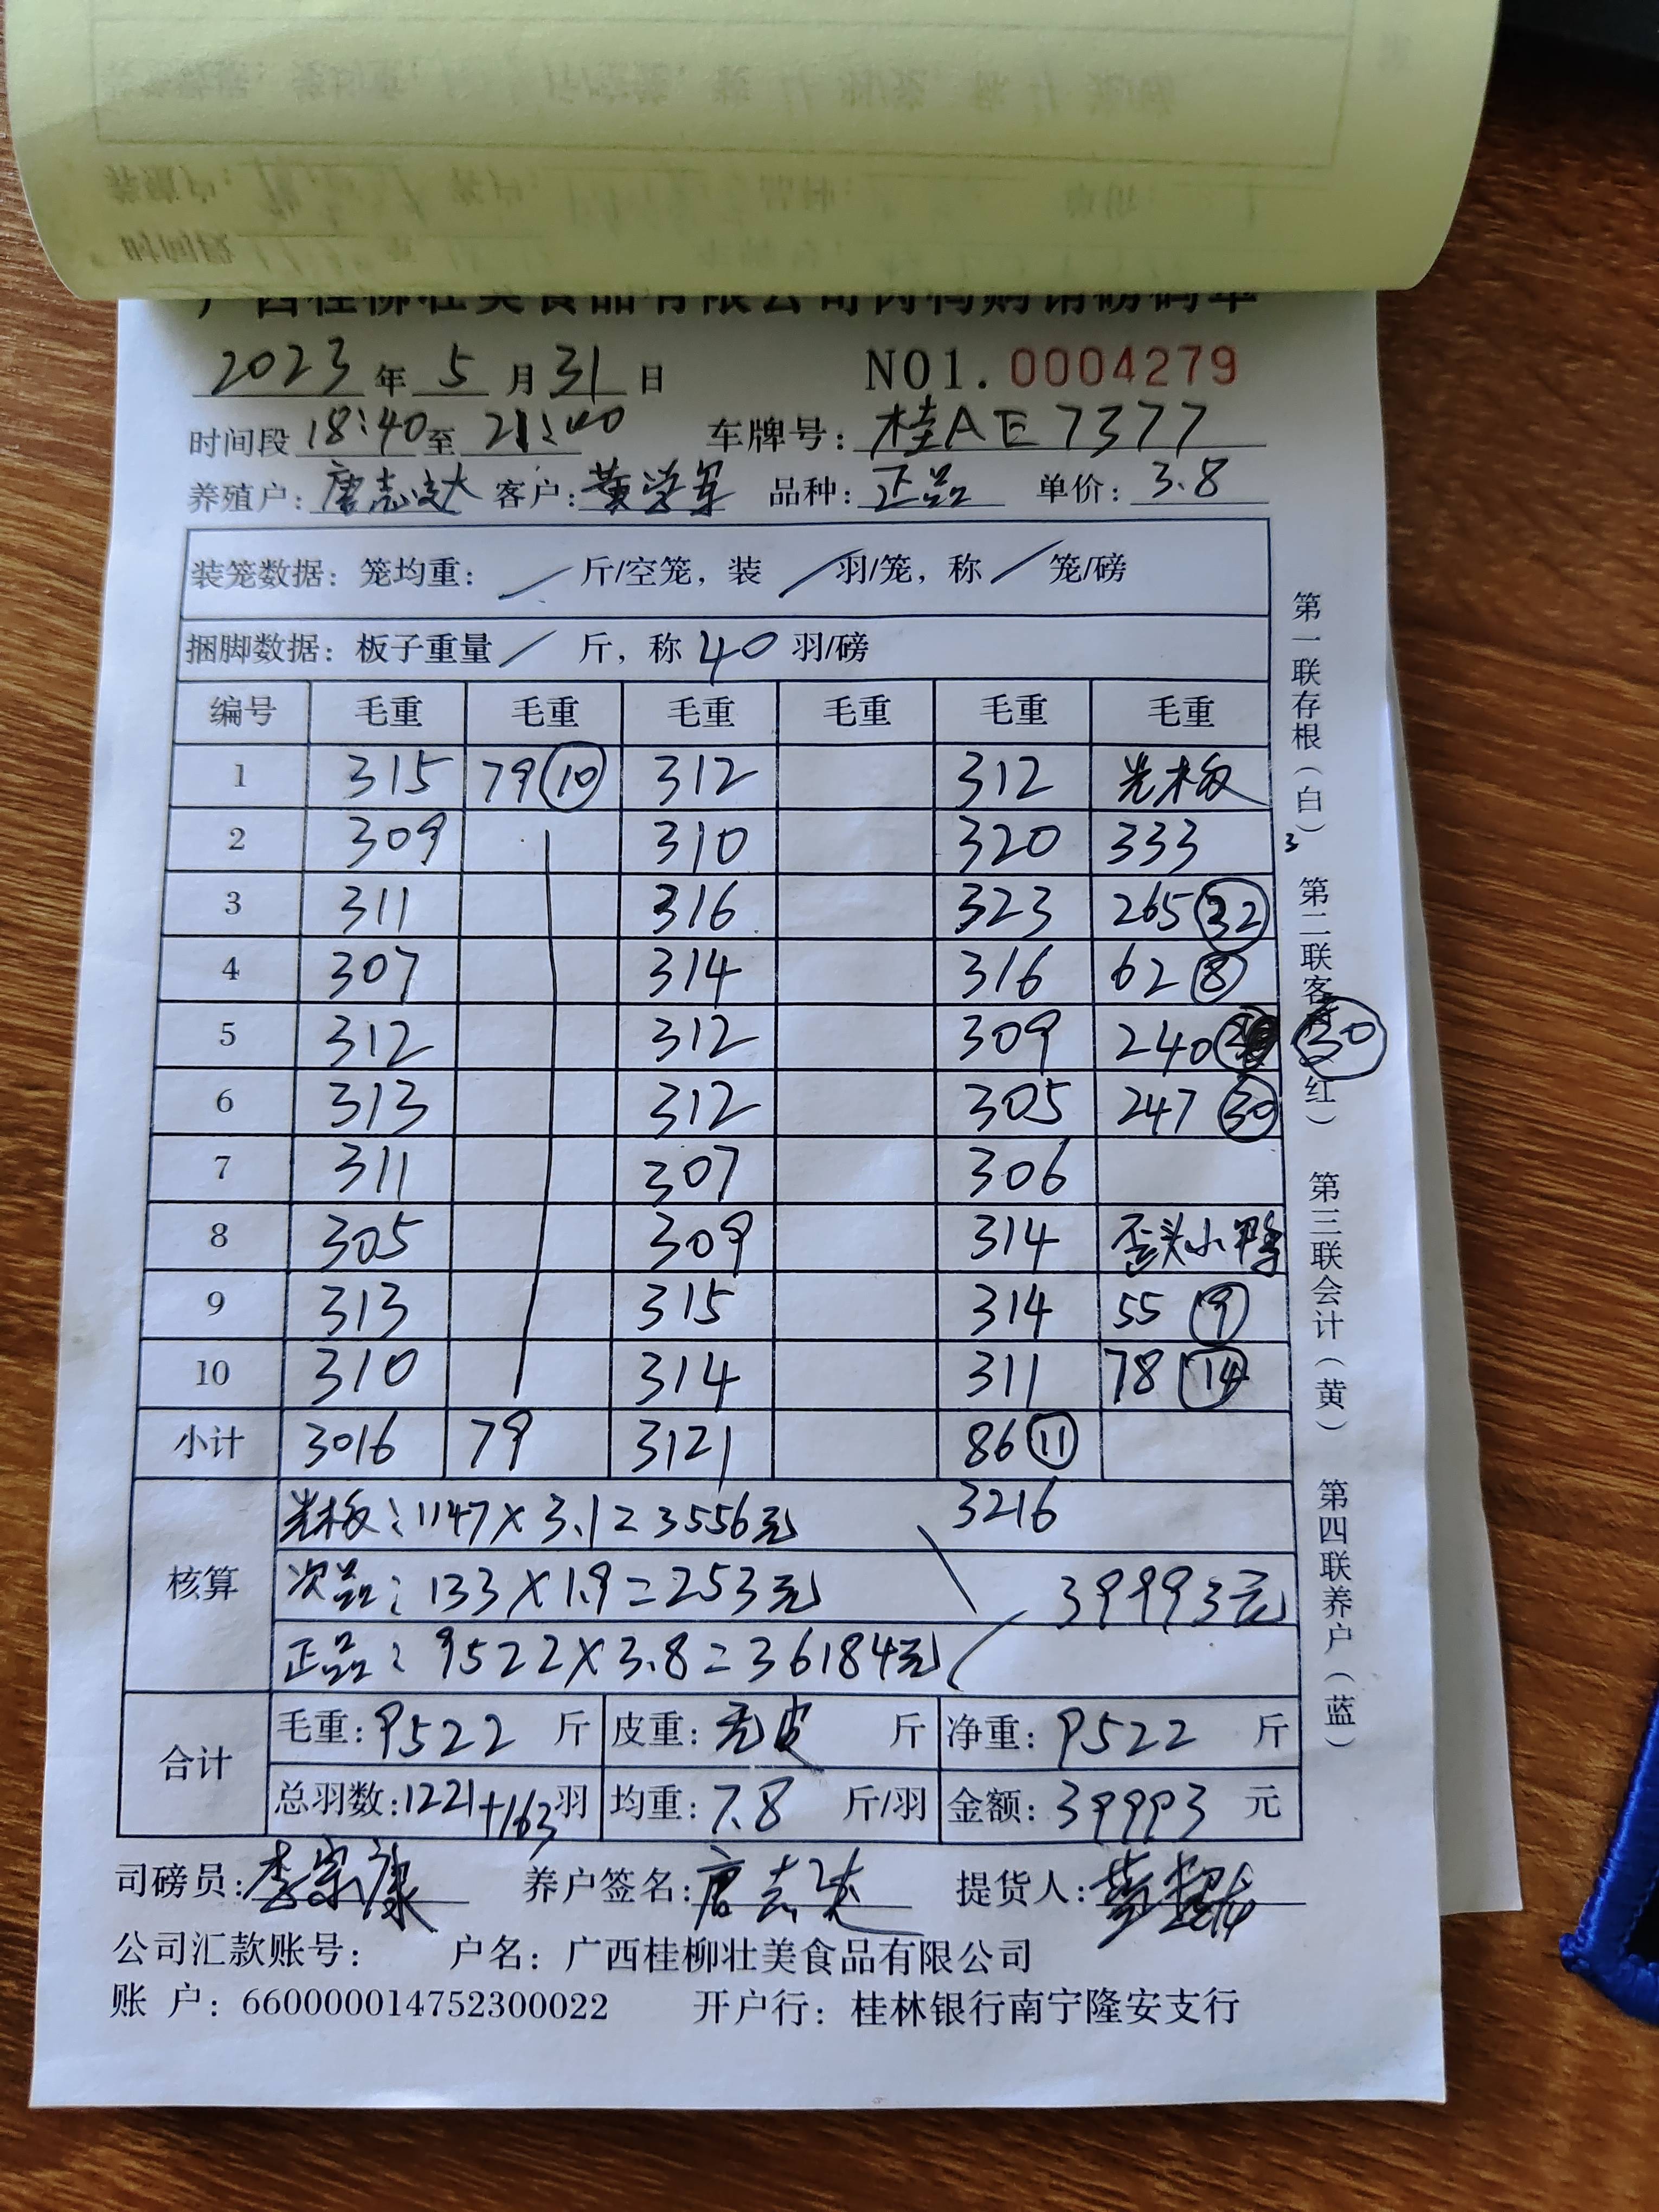 广西桂柳壮美食品有限公司肉鸭购销磅码单
2023年5月31日 NO1.0004279
时间段18:40至21:40 车牌号:桂AE7377
养殖户:唐志达 客户:黄学军 品种:正品 单价:3.8
装笼数据:笼均重: / 斤/空笼,装 / 羽/笼,称 / 笼/磅
捆脚数据:板子重量 / 斤,称40羽/磅
编号 毛重 毛重 毛重 毛重 毛重 毛重
1 315 79⑩ 312 312 光板
2 309 310 320 333
3 311 316 323 265㉜
4 307 314 316 62⑧
5 312 312 309 240 ㉚
6 313 312 305 247㉚
7 311 307 306
8 305 309 314 歪头小鸭
9 313 315 314 55⑨
10 310 314 311 78⑭
小计 3016 79 3121 86⑪
核算
光板:1147×3.1=3556元 3216
次品:133×1.9=253元 39993元
正品:9522×3.8=36184元
合计
毛重:9522斤 皮重:无皮斤 净重:9522斤
总羽数:1221+163羽 均重:7.8斤/羽 金额:39993元
司磅员:李宗康 养户签名:唐志达 提货人:
公司汇款账号: 户名:广西桂柳壮美食品有限公司
账户:660000014752300022 开户行:桂林银行南宁隆安支行
第一联存根(白) 第二联客户(红) 第三联会计(黄) 第四联养户(蓝)